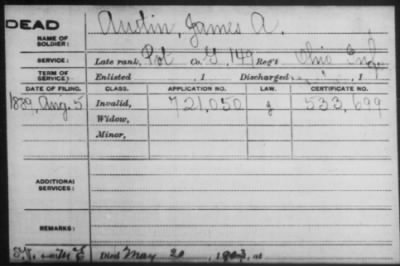 DEAD
NAME OF SOLDIER: Austin, James A.
SERVICE: Late rank, Pvt Co. G, 149 Reg't Ohio Inf
TERM OF SERVICE: Enlisted , 1 Discharged , 1
DATE OF FILING. CLASS. APPLICATION NO. LAW. CERTIFICATE NO.
1889, Aug. 5 Invalid, 721,050 533,699
Widow,
Minor,
ADDITIONAL SERVICES:
REMARKS:
Died May 20, at